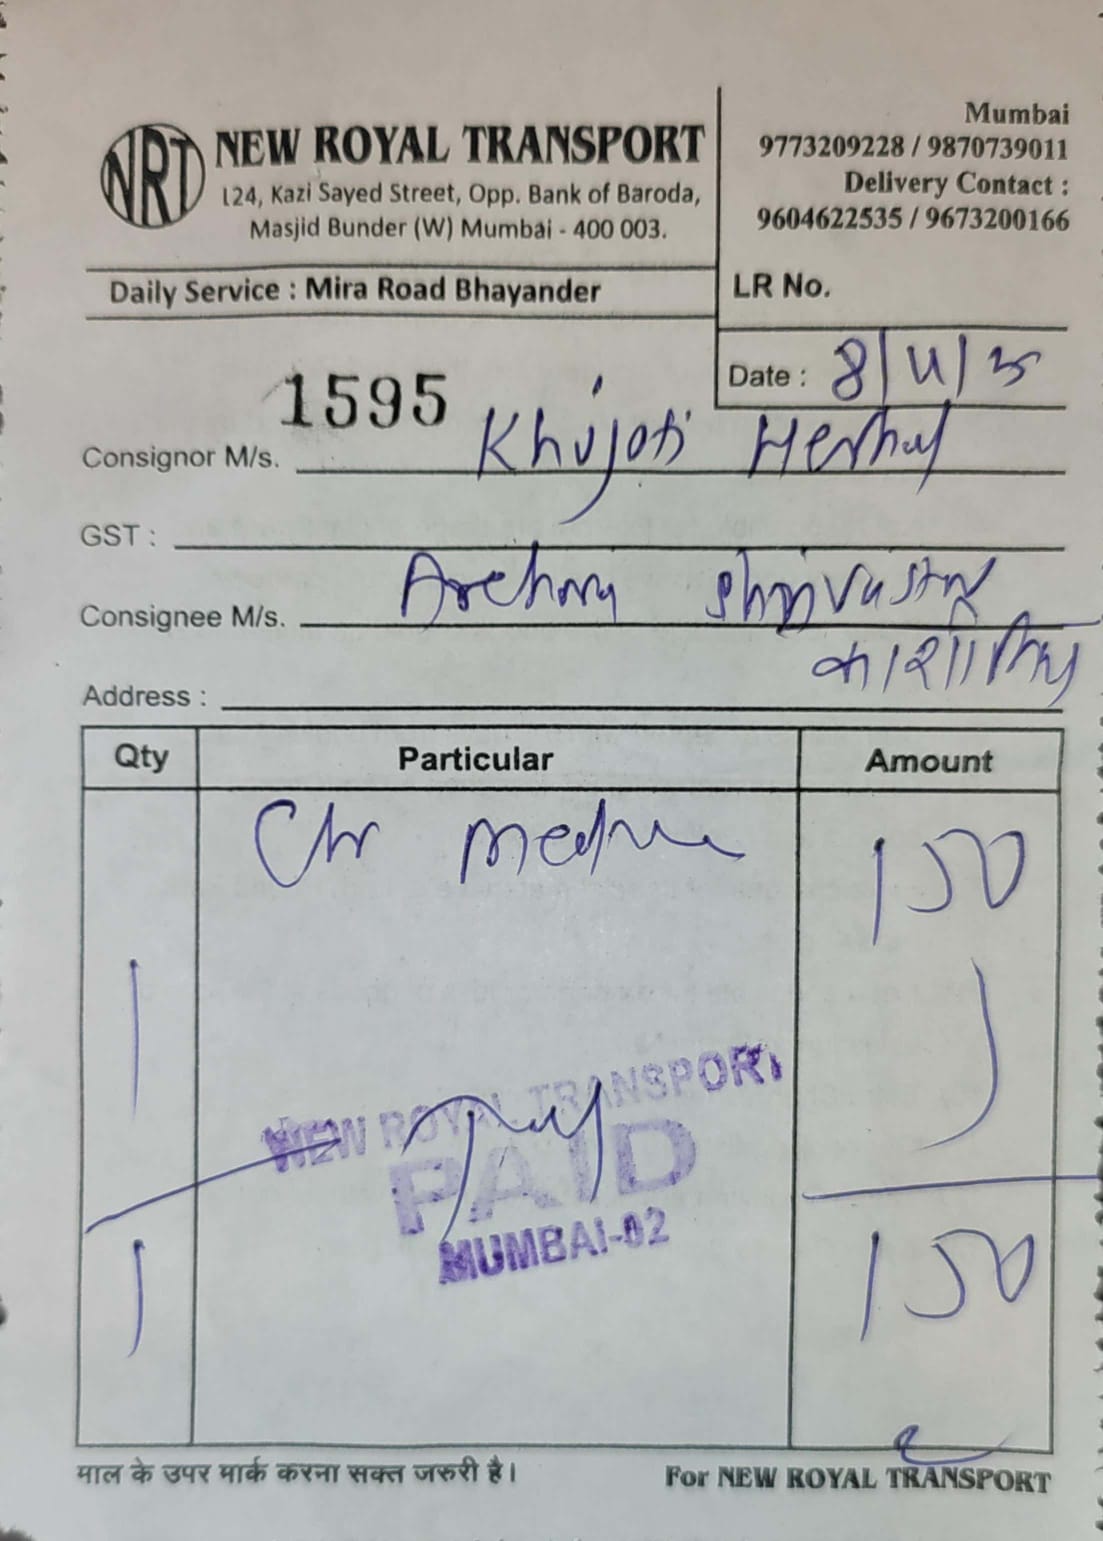 NRT
NEW ROYAL TRANSPORT
124, Kazi Sayed Street, Opp. Bank of Baroda,
Masjid Bunder (W) Mumbai - 400 003.
Daily Service : Mira Road Bhayander
Mumbai
9773209228 / 9870739011
Delivery Contact :
9604622535 / 9673200166
LR No.
Date : 8/11/25
1595
Consignor M/s. Herbal
GST :
Consignee M/s.
Address :
Qty Particular Amount
150
1
NEW ROYAL TRANSPORT
PAID
MUMBAI-02
1 150
माल के उपर मार्क करना सक्त जरुरी है।
For NEW ROYAL TRANSPORT